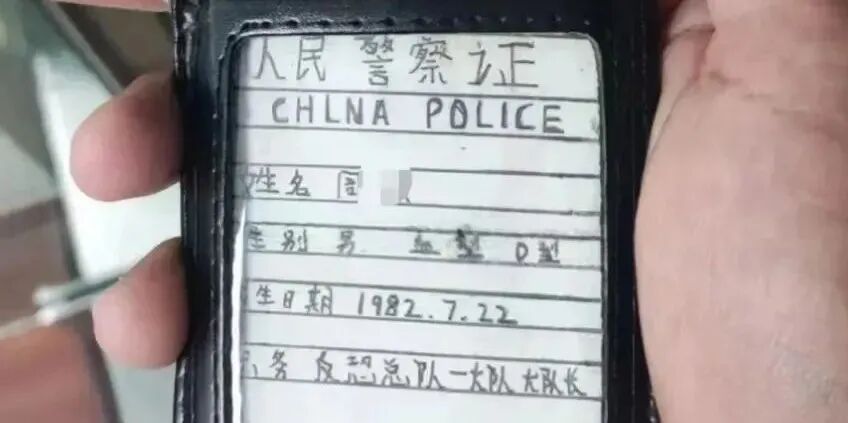 人民警察证
CHLNA POLICE
姓名 周
性别 男 血型 O型
生日期 1982.7.22
务 反恐总队一大队大队长